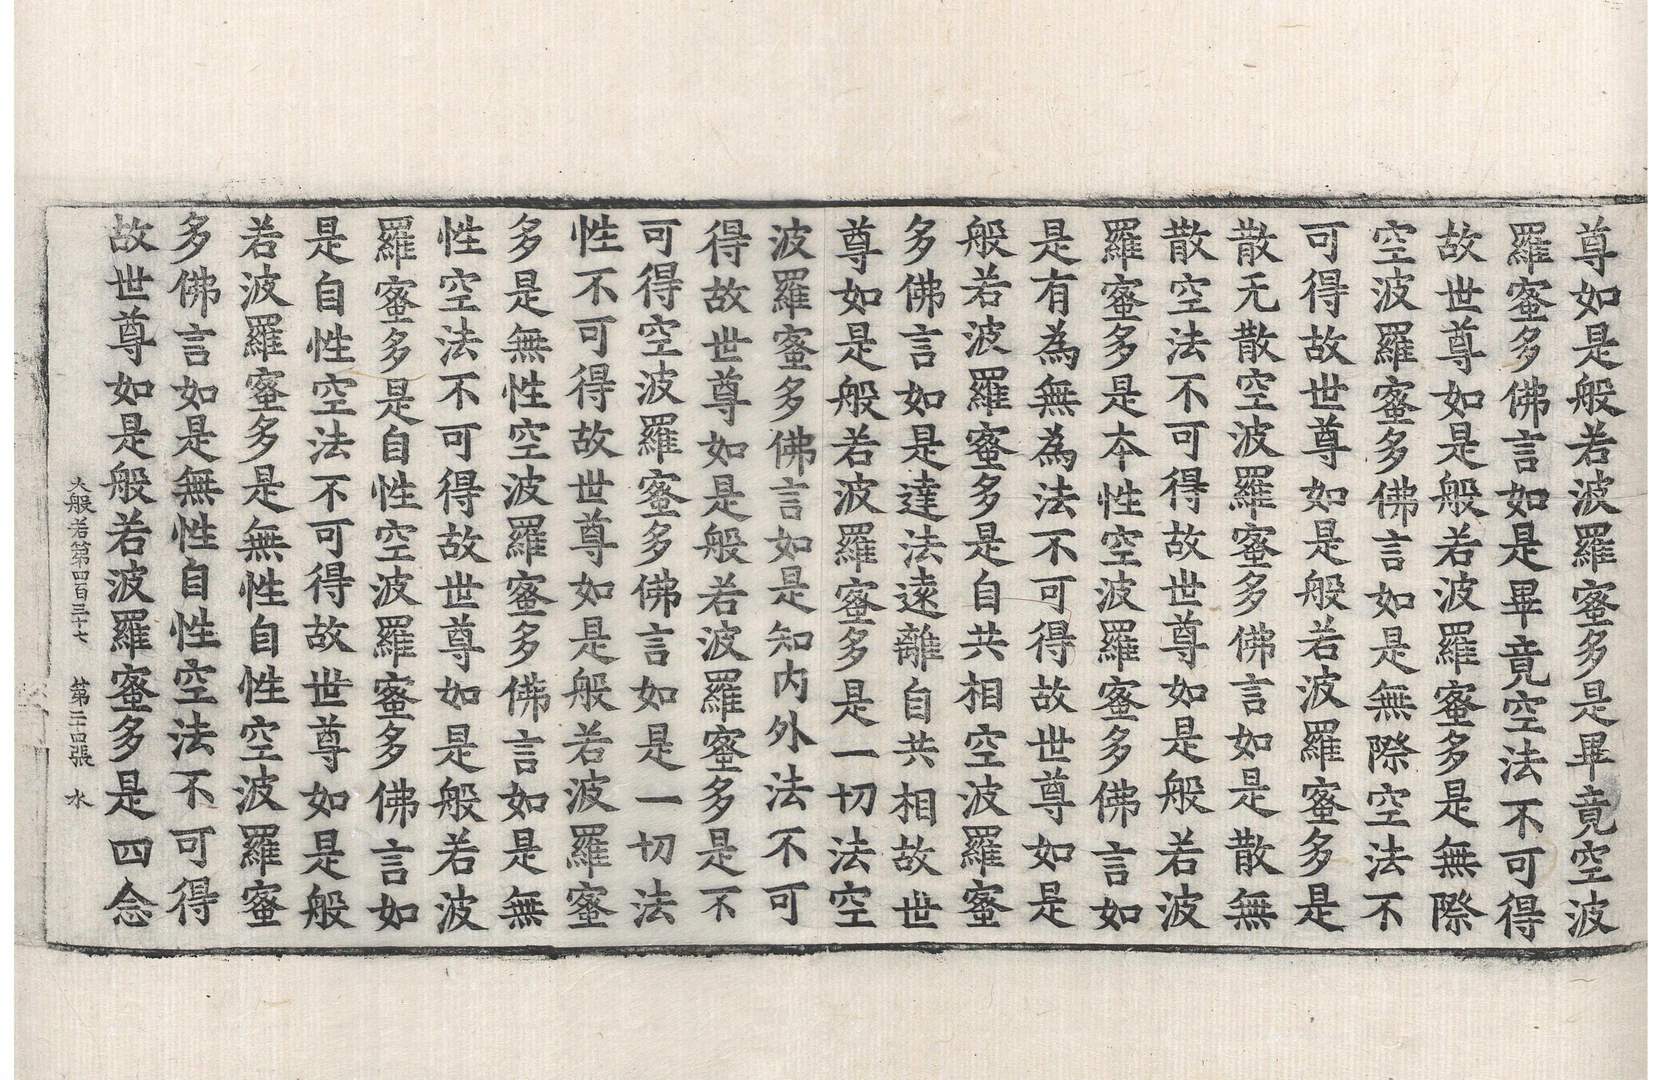 尊如是般若波羅蜜多是畢竟空波
羅蜜多佛言如是畢竟空法不可得
故世尊如是般若波羅蜜多是無際
空波羅蜜多佛言如是無際空法不
可得故世尊如是般若波羅蜜多是
散无散空波羅蜜多佛言如是散無
散空法不可得故世尊如是般若波
羅蜜多是本性空波羅蜜多佛言如
是有為無為法不可得故世尊如是
般若波羅蜜多是自共相空波羅蜜
多佛言如是達法遠離自共相故世
尊如是般若波羅蜜多是一切法空
波羅蜜多佛言如是知内外法不可
得故世尊如是般若波羅蜜多是不
可得空波羅蜜多佛言如是一切法
性不可得故世尊如是般若波羅蜜
多是無性空波羅蜜多佛言如是無
性空法不可得故世尊如是般若波
羅蜜多是自性空波羅蜜多佛言如
是自性空法不可得故世尊如是般
若波羅蜜多是無性自性空波羅蜜
多佛言如是無性自性空法不可得
故世尊如是般若波羅蜜多是四念
大般若第四百三十七 第二十四張 水